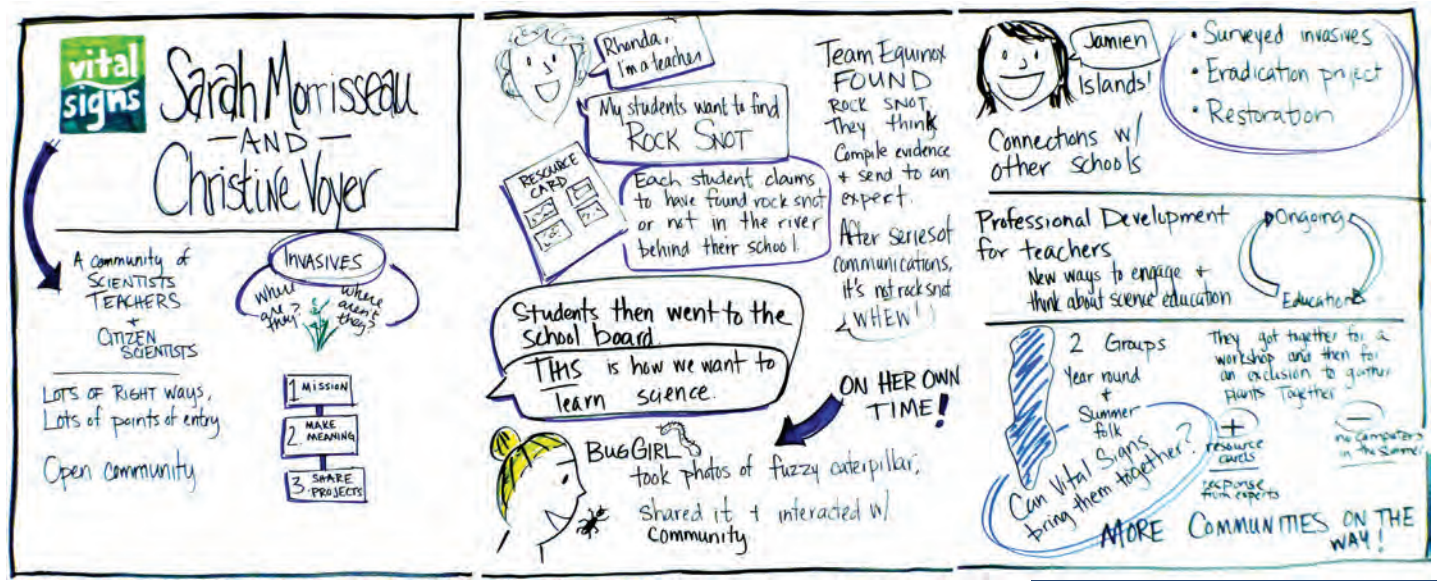 vital
signs
Sarah Morrisseau
- AND -
Christine Voyer
A community of
SCIENTISTS
TEACHERS
+
CITIZEN
SCIENTISTS
INVASIVES
where
are
they?
where
aren't
they?
LOTS OF RIGHT WAYS,
Lots of points of entry
Open community
1 MISSION
2. MAKE
MEANING
3. SHARE
PROJECTS
Rhonda,
I'm a teacher
My students want to find
ROCK SNOT
RESOURCE
CARD
Each student claims
to have found rock snot
or not in the river
behind their school.
Students then went to the
school board.
THIS is how we want to
learn science.
Team Equinox
FOUND
ROCK SNOT,
They think
Compile evidence
+ send to an
expert.
After series of
communications,
it's not rock snot
WHEW!
ON HER OWN
TIME!
BUG GIRL
took photos of fuzzy caterpillar,
Shared it + interacted w/
Community
Jamien
Islands!
Connections w/
other schools
• Surveyed invasives
• Eradication project
• Restoration
Professional Development
for teachers
New ways to engage +
think about science education
Ongoing
Education
2 Groups
Year round
+
Summer
folk
Can Vital Signs
bring them together?
They got together for a
workshop and then for
an exclusion to gather
plants Together
+
resource
cards
response
from experts
-
no computers
in the summer
MORE COMMUNITIES ON THE
WAY!